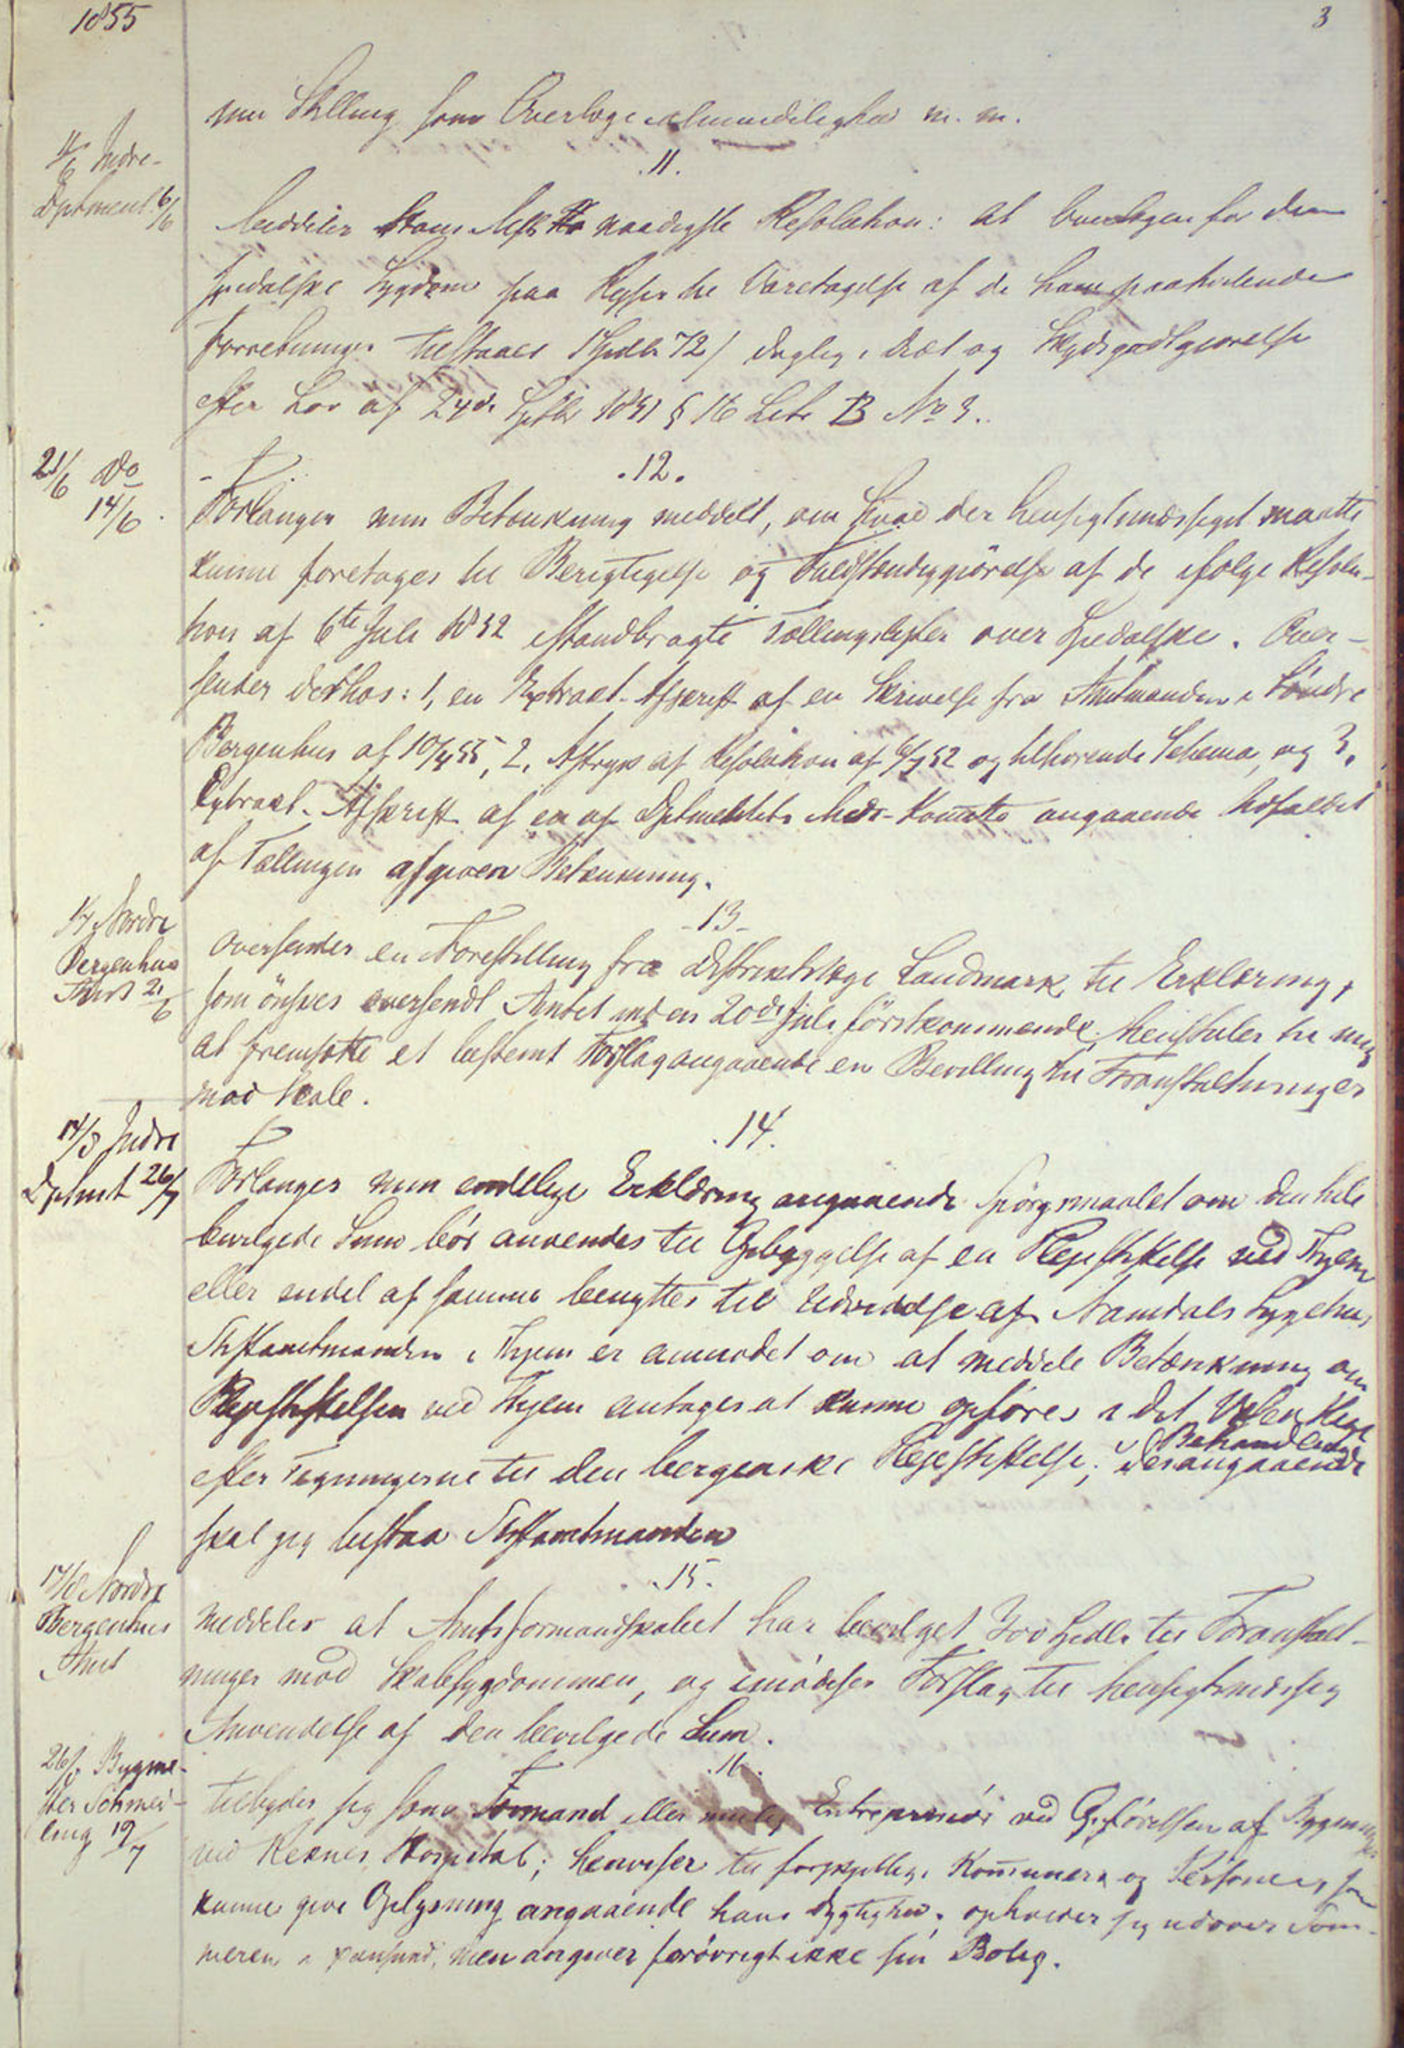 1855
3
min Stilling som Overlæge i Almindelighed m. m.
11.
11/6 Indre-
Dptment 6/6
Meddeler Hans Mjts naadigste Resolution: at Overlægen for den
spedalske Sygdom paa Reyser til Varetagelse af de ham paahvilende
Forretninger tilstaaes 1 Spdlr 72 / daglig i Diæt og Skydsgodtgjørelse
efter Lov af 24de Septbr 1851 § 16 Litr B No 3.
.12.
21/6 Do
14/6.
Forlanger min Betænkning meddelt, om hvad der hensigtsmæssigst maatte
kunne foretages til Berigtigelse og Fuldstændiggjörelse af de ifölge Resolu-
tion af 6te Juli 1852 istandbragte Tællingslister over Spedalske. Over-
sender derhos: 1, en Extract-Afskrift af en Skrivelse fra Amtmanden i Söndre
Bergenhus af 10/4 55, 2, Aftryk af Resolution af 6/7 52 og tilhörende Schema, og 3,
Extract-Afskrift af en af Dptmentets Meds-Komite angaaende Udfaldet
af Tællingen afgiven Betænkning.
-13-
Nordre
Bergenhus
Amt 21/6
Oversender en Forestilling fra Distriktslæge Landmark til Erklæring,
som önskes oversendt Amtet inden 20de Juli förstkommende, henstiller til mig
at fremsætte et bestemt Forslag angaaende en Bevilling til Foranstaltninger
mod Skab.
.14.
Indre
Dptmt 26/7
Forlanger min endelige Erklæring angaaende Spörgsmaalet om den hele
bevilgede Sum bör anvendes til Opbyggelse af en Plejestiftelse ved Thjem
eller endel af samme benyttes til Udvidelse af Namdals Sygehus
Stiftamtmanden i Thjem er anmodet om at meddele Betænkning om
Plejestiftelsen ved Thjem antages at kunne opföres i det Væsentlige
efter Tegningerne til den bergenske Plejestiftelse; i Behandling desangaaende
skal jeg bistaa Stiftamtmanden
.15.
17/8 Nordre
Bergenhus
Amt
Meddeler at Amtsformandskabet har bevilget 300 Spdlr til Foranstalt-
ninger mod Skabsygdommen, og imödeser Forslag til hensigtsmæssig
Anvendelse af den bevilgede Sum.
.16.
Bygme-
ster Schmed-
ling 19/7
Tilbyder sig som Formand eller mulig Entreprenör ved Opförelsen af Bygninger
ved Reknes Hospital; henviser til forskjellige Kommuner og Personer, som
kunne give Oplysning angaaende hans Dygtighed. opholder sig udover Som-
meren i , men angiver forövrigt ikke sin Bolig.